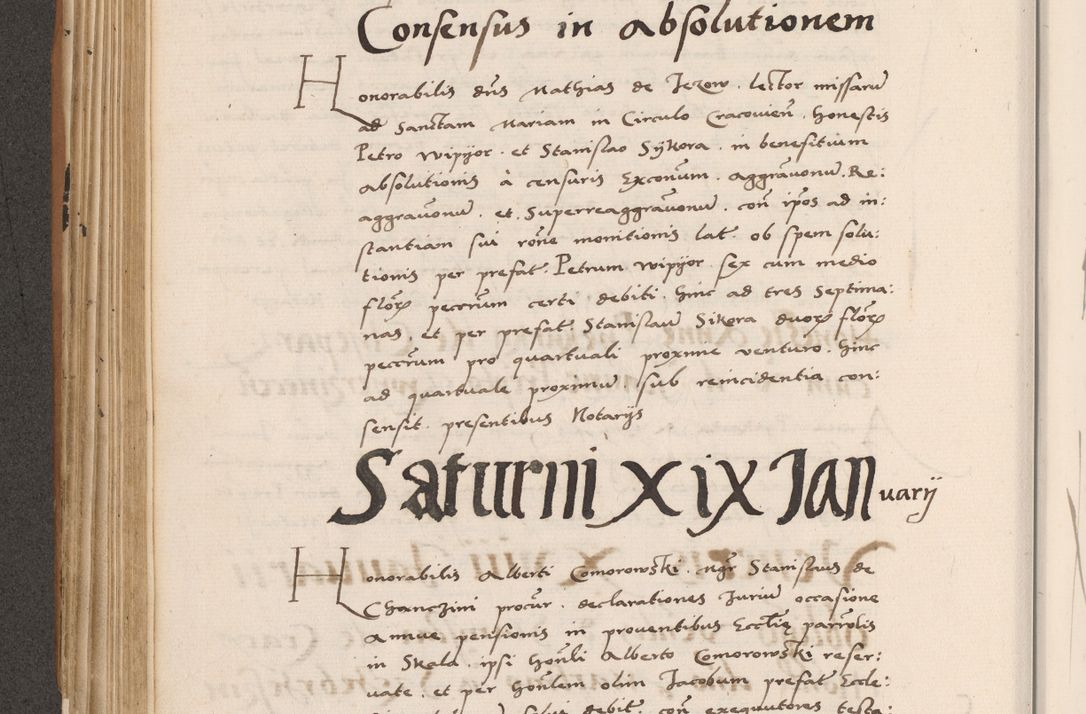 Consensus in absolutionem
Honorabilis dn̄s Mathias de Jezow . lector missarū
ad Sanctam Mariam in Circulo Cracovien̄ . honestis
Petro Wipijor . et Stanislao Sÿkora . in benefitium
absolutionis à censuris Exconum̄ . aggravonū . Re:
aggravonū . et . Superreaggravonū . con̄ ipōs ad in:
stantiam sui rōne monitionis lat̄ . ob spem solu:
tionis per prefat̄ . Petrum Wipijor . sex cum medio
florꝝ peccrūm certi debiti . hinc ad tres Septima:
nas . et per prefat̄ . Stanislaū Sikora duorꝝ florꝝ
peccrūm pro quartuali proxime venturo . hinc
ad quartuale proximū sub reincidentia con:
sensit . presentibus Notarijs
Saturni XIX Januarij
Honorabilis Alberti Comorowski . mgr̄ Stanislaus de
Chanczini procur̄ . declarationes Jurium occasione
annue pensionis in proventibus Ecclīe parrōlis
in Skala . ipsi honli Alberto Comorowski reser:
vate . et per honlem olim Jacobum prefat̄ Eccle:
debit̄ . con̄ exequutores testa: